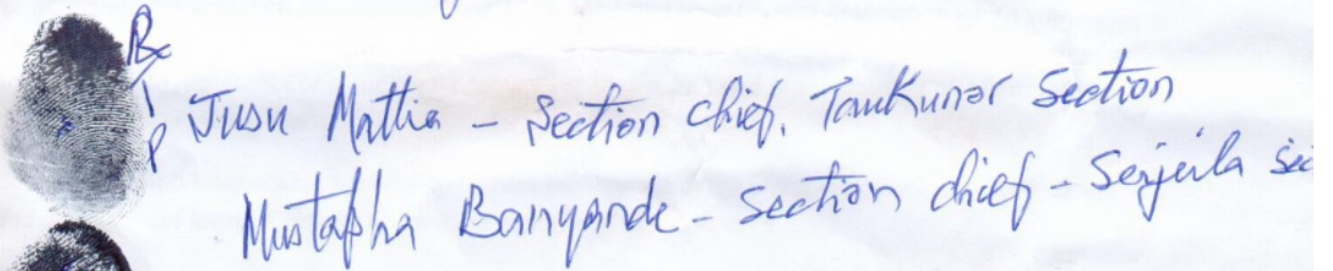 Jusu Mattia - Section chief, Taukunor Section
Mustapha Banyande - Section chief - Seijeila sec